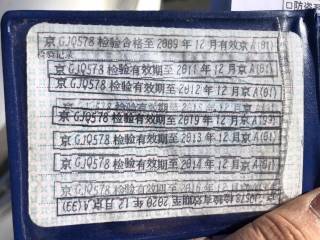 京GJQ578检验合格至2009年12月有效京A(01)
检验记录
京GJQ578检验有效期至2011年12月京A(01)
京GJQ578检验有效期至2012年12月京A(01)
京GJQ578检验有效期至2019年12月京A(99)
京GJQ578检验有效期至2013年12月京A(01)
京GJQ578检验有效期至2014年12月京A(01)
京GJQ578检验有效期至2016年12月
GJQ578检验有效期至2020年12月京A(99)